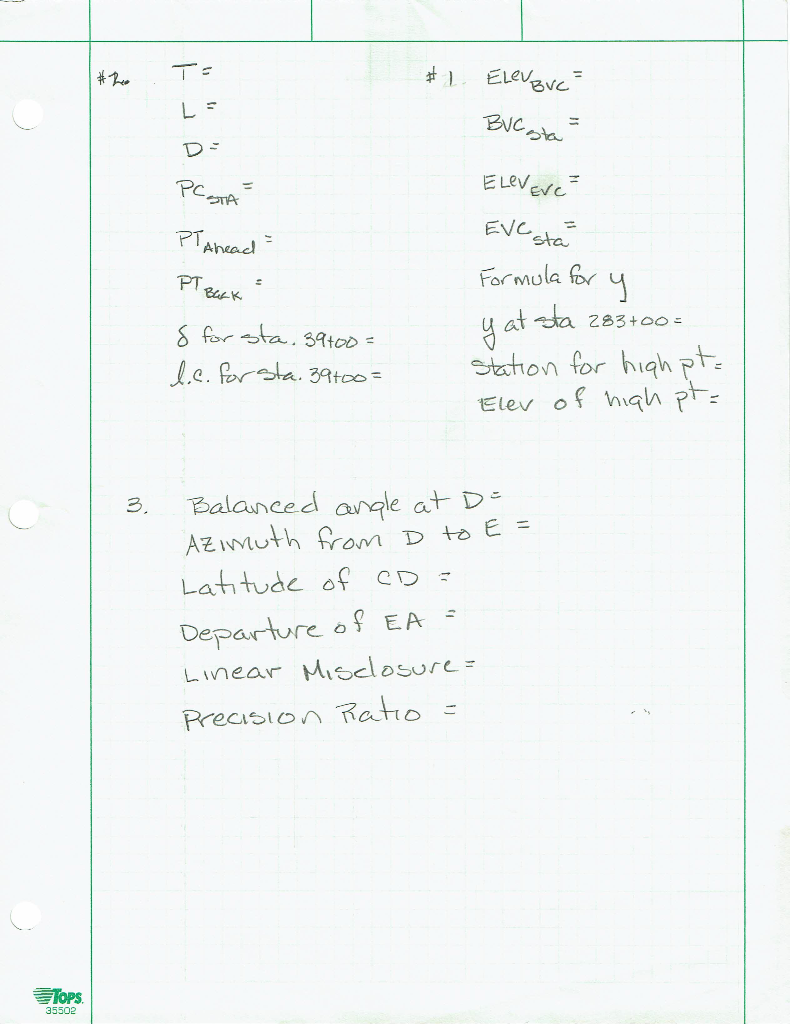 #2.
T=
L=
D=
PC STA =
PT Ahead =
PT Back =
δ for sta. 39+00 =
l.c. for sta. 39+00 =
#1 Elev BVC =
BVC sta =
Elev EVC =
EVC sta =
Formula for y
y at sta 283+00=
Station for high pt=
Elev of high pt=
3. Balanced angle at D=
Azimuth from D to E =
Latitude of CD =
Departure of EA =
Linear Misclosure=
Precision Ratio =
TOPS
35502